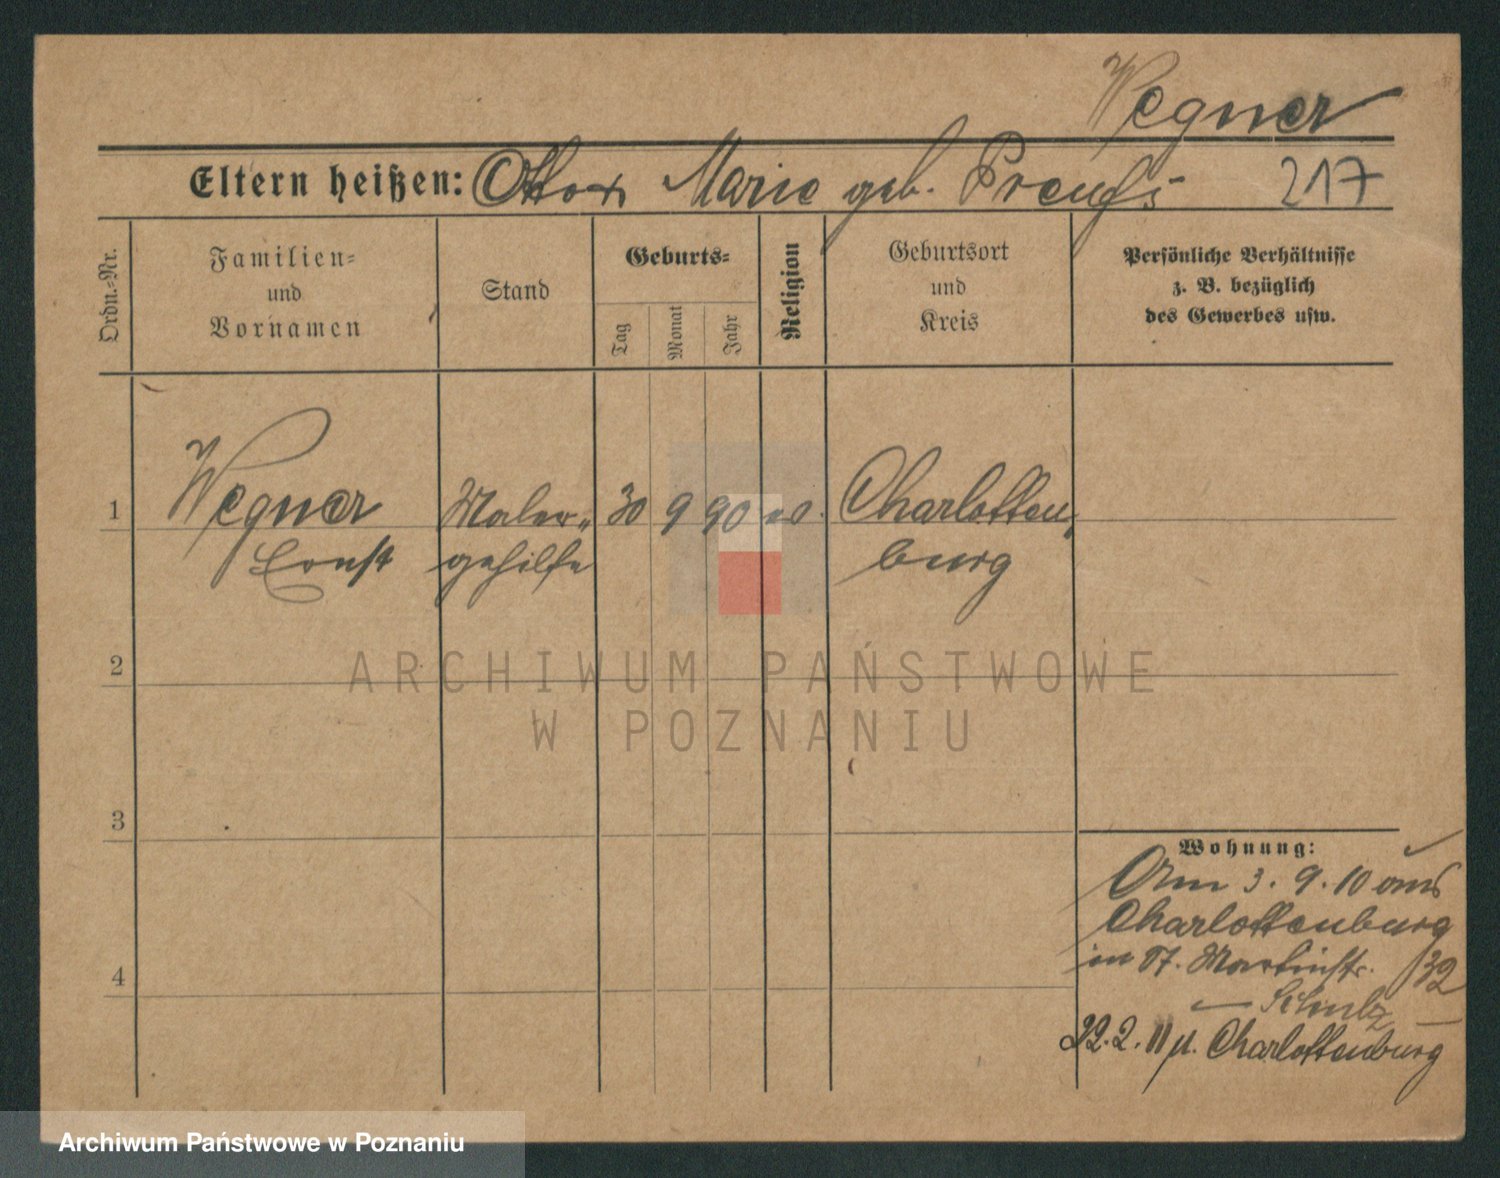 Wegner
Eltern heißen: Otto u. Marie geb. Preuß 217
Ordn.-Nr.
Familien-
und
Vornamen
Stand
Geburts-
Tag
Monat
Jahr
Religion
Geburtsort
und
Kreis
Persönliche Verhältnisse
z. B. bezüglich
des Gewerbes usw.
1 Wegner Maler- 30 9 90 ev. Charlotten-
Ernst gehilfe burg
2
3
4
Wohnung:
Am 3.9.10 aus
Charlottenburg
in St. Martinstr. 32
— Schulz —
22.2.11 n. Charlottenburg
ARCHIWUM PAŃSTWOWE
W POZNANIU
Archiwum Państwowe w Poznaniu